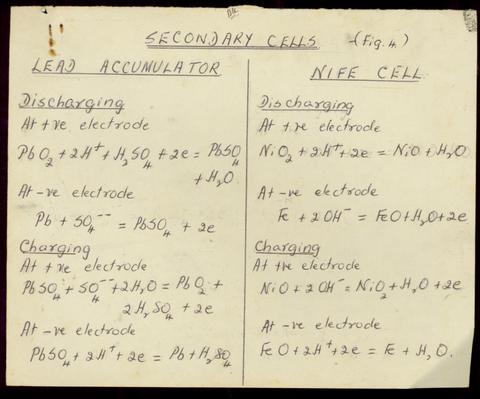 SECONDARY CELLS (Fig. 4)
LEAD ACCUMULATOR
Discharging
At +ve electrode
PbO₂ + 2H⁺ + H₂SO₄ + 2e = PbSO₄
+ H₂O
At -ve electrode
Pb + SO₄⁻⁻ = PbSO₄ + 2e
Charging
At +ve electrode
PbSO₄ + SO₄⁻⁻ + 2H₂O = PbO₂ +
2H₂SO₄ + 2e
At -ve electrode
PbSO₄ + 2H⁺ + 2e = Pb + H₂SO₄
NIFE CELL
Discharging
At +ve electrode
NiO₂ + 2H⁺ + 2e = NiO + H₂O
At -ve electrode
Fe + 2OH⁻ = FeO + H₂O + 2e
Charging
At +ve electrode
NiO + 2OH⁻ = NiO₂ + H₂O + 2e
At -ve electrode
FeO + 2H⁺ + 2e = Fe + H₂O.